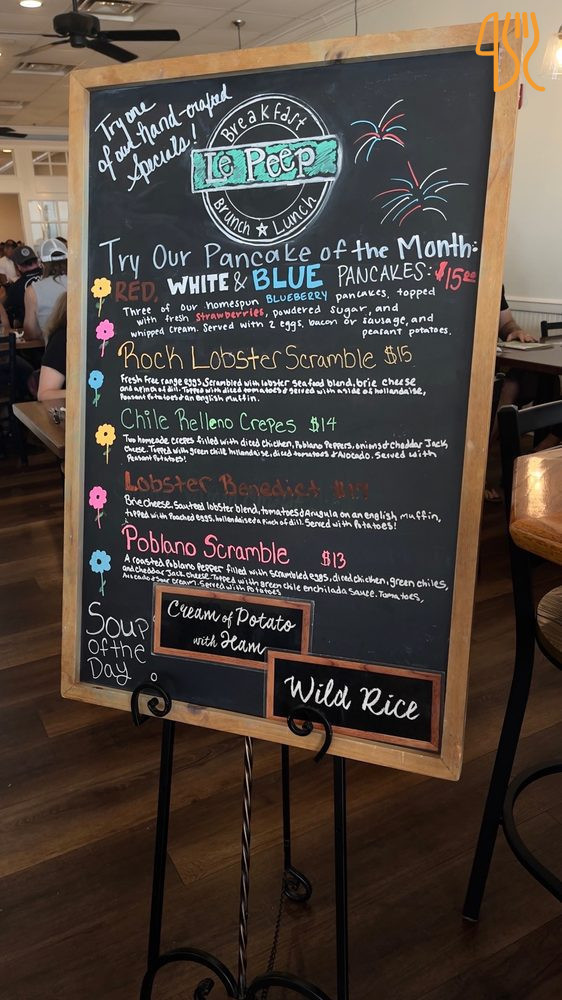 Try one
of our hand-crafted
Specials!
Breakfast
Le Peep
Brunch ★ Lunch
Try Our Pancake of the Month:
RED, WHITE & BLUE PANCAKES: $15.00
Three of our homespun BLUEBERRY pancakes, topped
with fresh strawberries, powdered sugar, and
whipped cream. Served with 2 eggs, bacon or sausage, and
peasant potatoes.
Rock Lobster Scramble $15
Fresh Free range eggs, Scrambled with lobster Seafood blend, brie cheese
and a pinch of dill. Topped with diced tomatoes & served with a side of hollandaise,
Peasant Potatoes & an english muffin.
Chile Relleno Crepes $14
Two homeade crepes filled with diced chicken, Poblano Peppers, onions & cheddar Jack
Cheese. Topped with green chile hollandaise, diced tomatoes & Avocado. Served with
Peasant Potatoes!
Lobster Benedict
Brie cheese, Sauteed lobster blend, tomatoes & Arugula on an english muffin,
topped with Poached eggs, hollandaise & a Pinch of dill. Served with Potatoes!
Poblano Scramble $13
A roasted Poblano Pepper filled with scrambled eggs, diced chicken, green chiles,
and cheddar Jack cheese. Topped with green chile enchilada sauce. Tomatoes,
Avocado & Sour cream. Served with Potatoes
Soup
of the
Day:
Cream of Potato
with Ham
Wild Rice